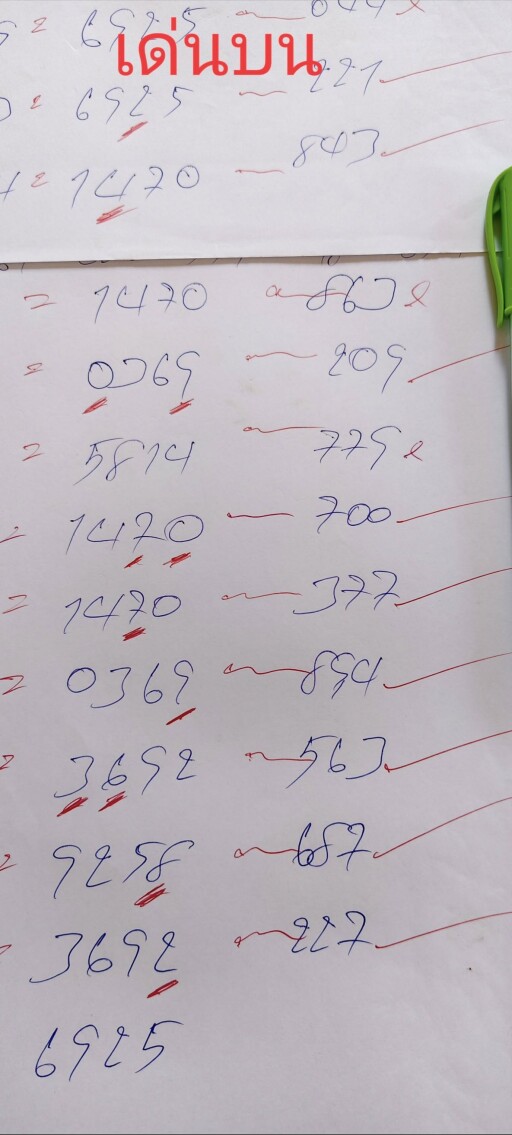 = 6925 — 044 x
เด่นบน
= 6925 — 221
= 1470 — 843
= 1470 — 863 x
= 0369 — 209
= 5814 — 779 x
= 1470 — 700
= 1470 — 377
= 0369 — 894
= 3692 — 563
= 9258 — 687
= 3692 — 227
6925